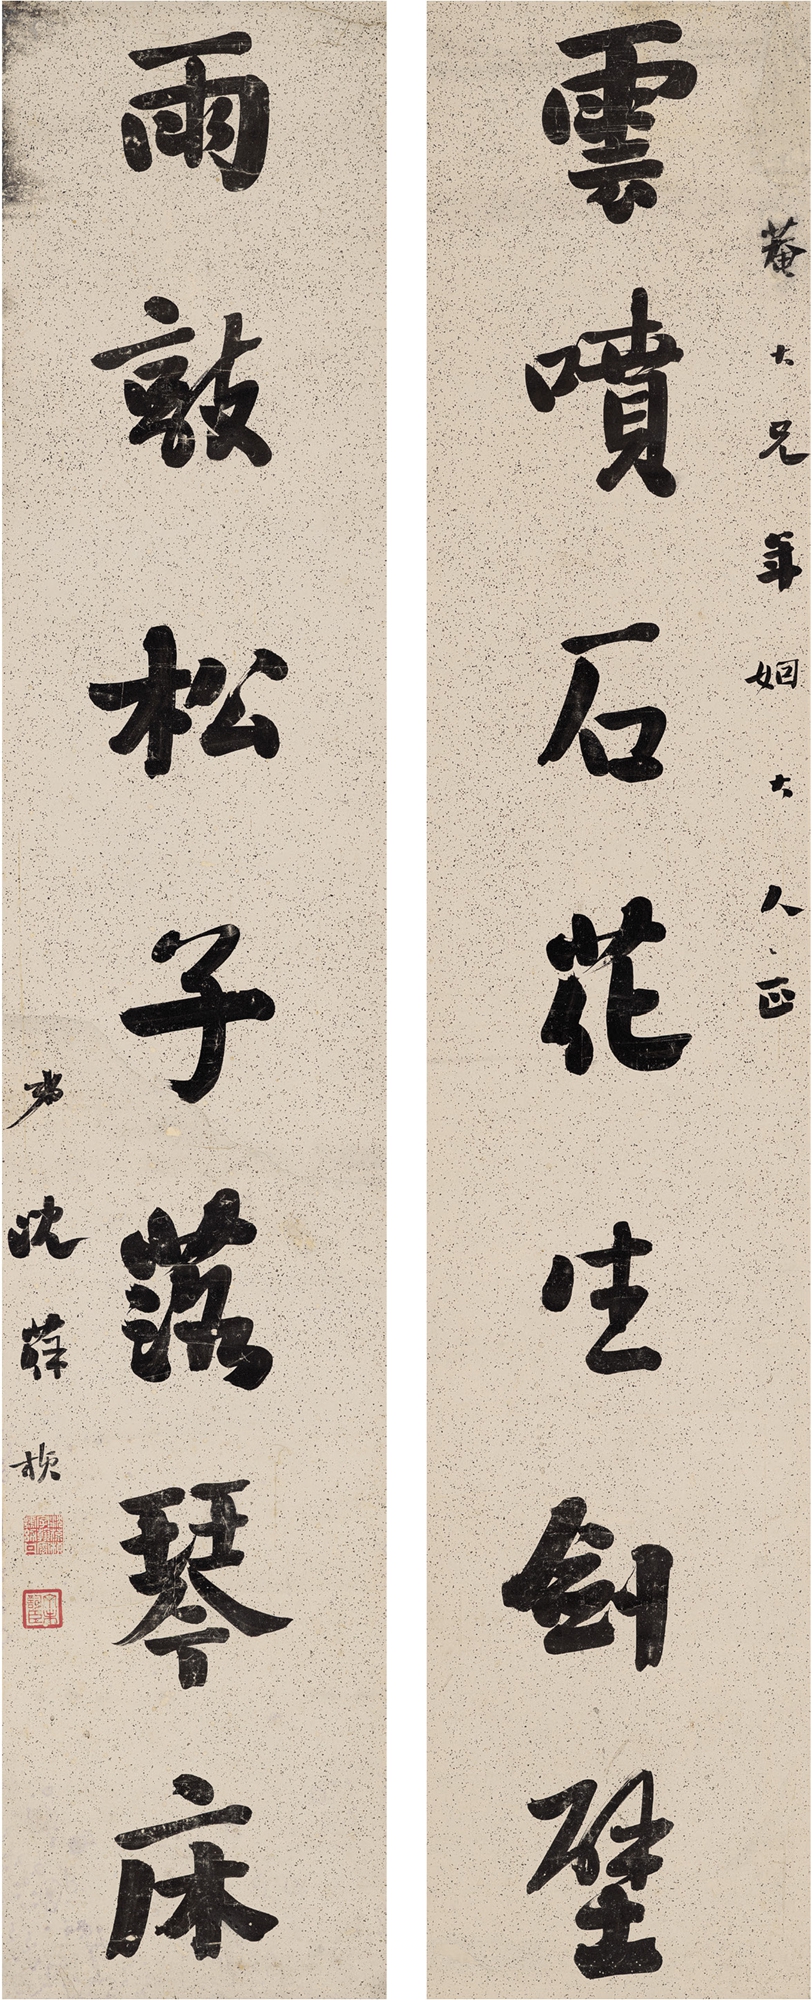 菴大兄年姻大人正
雲噴石花生劍壁
雨敲松子落琴床
弟沈葆楨